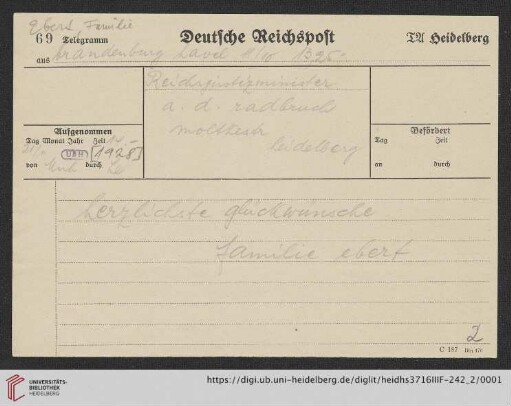 Ebert, Familie
69 Telegramm Deutsche Reichspost TA Heidelberg
aus brandenburg havel 11/10 1325
Reichsjustizminister
a. d. radbruch
moltkestr
heidelberg
Aufgenommen
Tag Monat Jahr Zeit
UBH [1928]
von durch
Befördert
Tag Zeit
an durch
herzlichste glückwünsche
familie ebert
2
C 187 Din
UNIVERSITÄTS-
BIBLIOTHEK
HEIDELBERG
https://digi.ub.uni-heidelberg.de/diglit/heidhs3716IIIF-242_2/0001